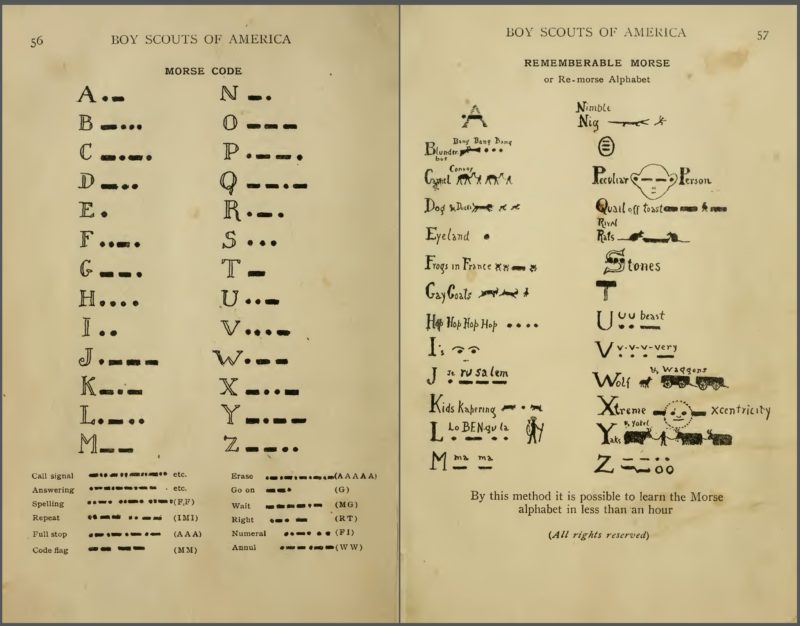 56
BOY SCOUTS OF AMERICA
MORSE CODE
A . -
B - . . .
C - . - .
D - . .
E .
F . . - .
G - - .
H . . . .
I . .
J . - - -
K - . -
L . - . .
M - -
N - .
O - - -
P . - - .
Q - - . -
R . - .
S . . .
T -
U . . -
V . . . -
W . - -
X - . . -
Y - . - -
Z - - . .
Call signal etc.
Answering . etc.
Spelling (F,F)
Repeat (IMI)
Full stop (AAA)
Code flag (MM)
Erase (AAAAA)
Go on (G)
Wait (MG)
Right (RT)
Numeral (FI)
Annul (WW)
BOY SCOUTS OF AMERICA
57
REMEMBERABLE MORSE
or Re-morse Alphabet
A
Bang Bang Bang
Blunder
bus
Convoy
Camel
Dog & Ducks
Eyeland
Frogs in France
Gay Goats
Hop Hop Hop Hop
I's
J je rusalem
Kids Kapering
L Lo BENgula
M ma ma
Nimble
Nig
O
Peculiar Person
Quail off toast
Rival
Rats
Stones
T
U U U beast
V v-v-v-very
Wolf v, Waggons
Xtreme xcentricity
Yaks
Z
By this method it is possible to learn the Morse
alphabet in less than an hour
(All rights reserved)